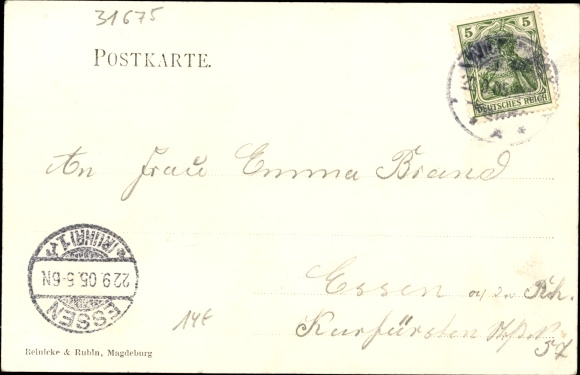 31675
POSTKARTE.
5
DEUTSCHES REICH
An Frau Emma Brand
ESSEN
22.9.05.5-6N
(RUHR)1
Essen
Kurfürsten
37
14€
Reinicke & Rubin, Magdeburg